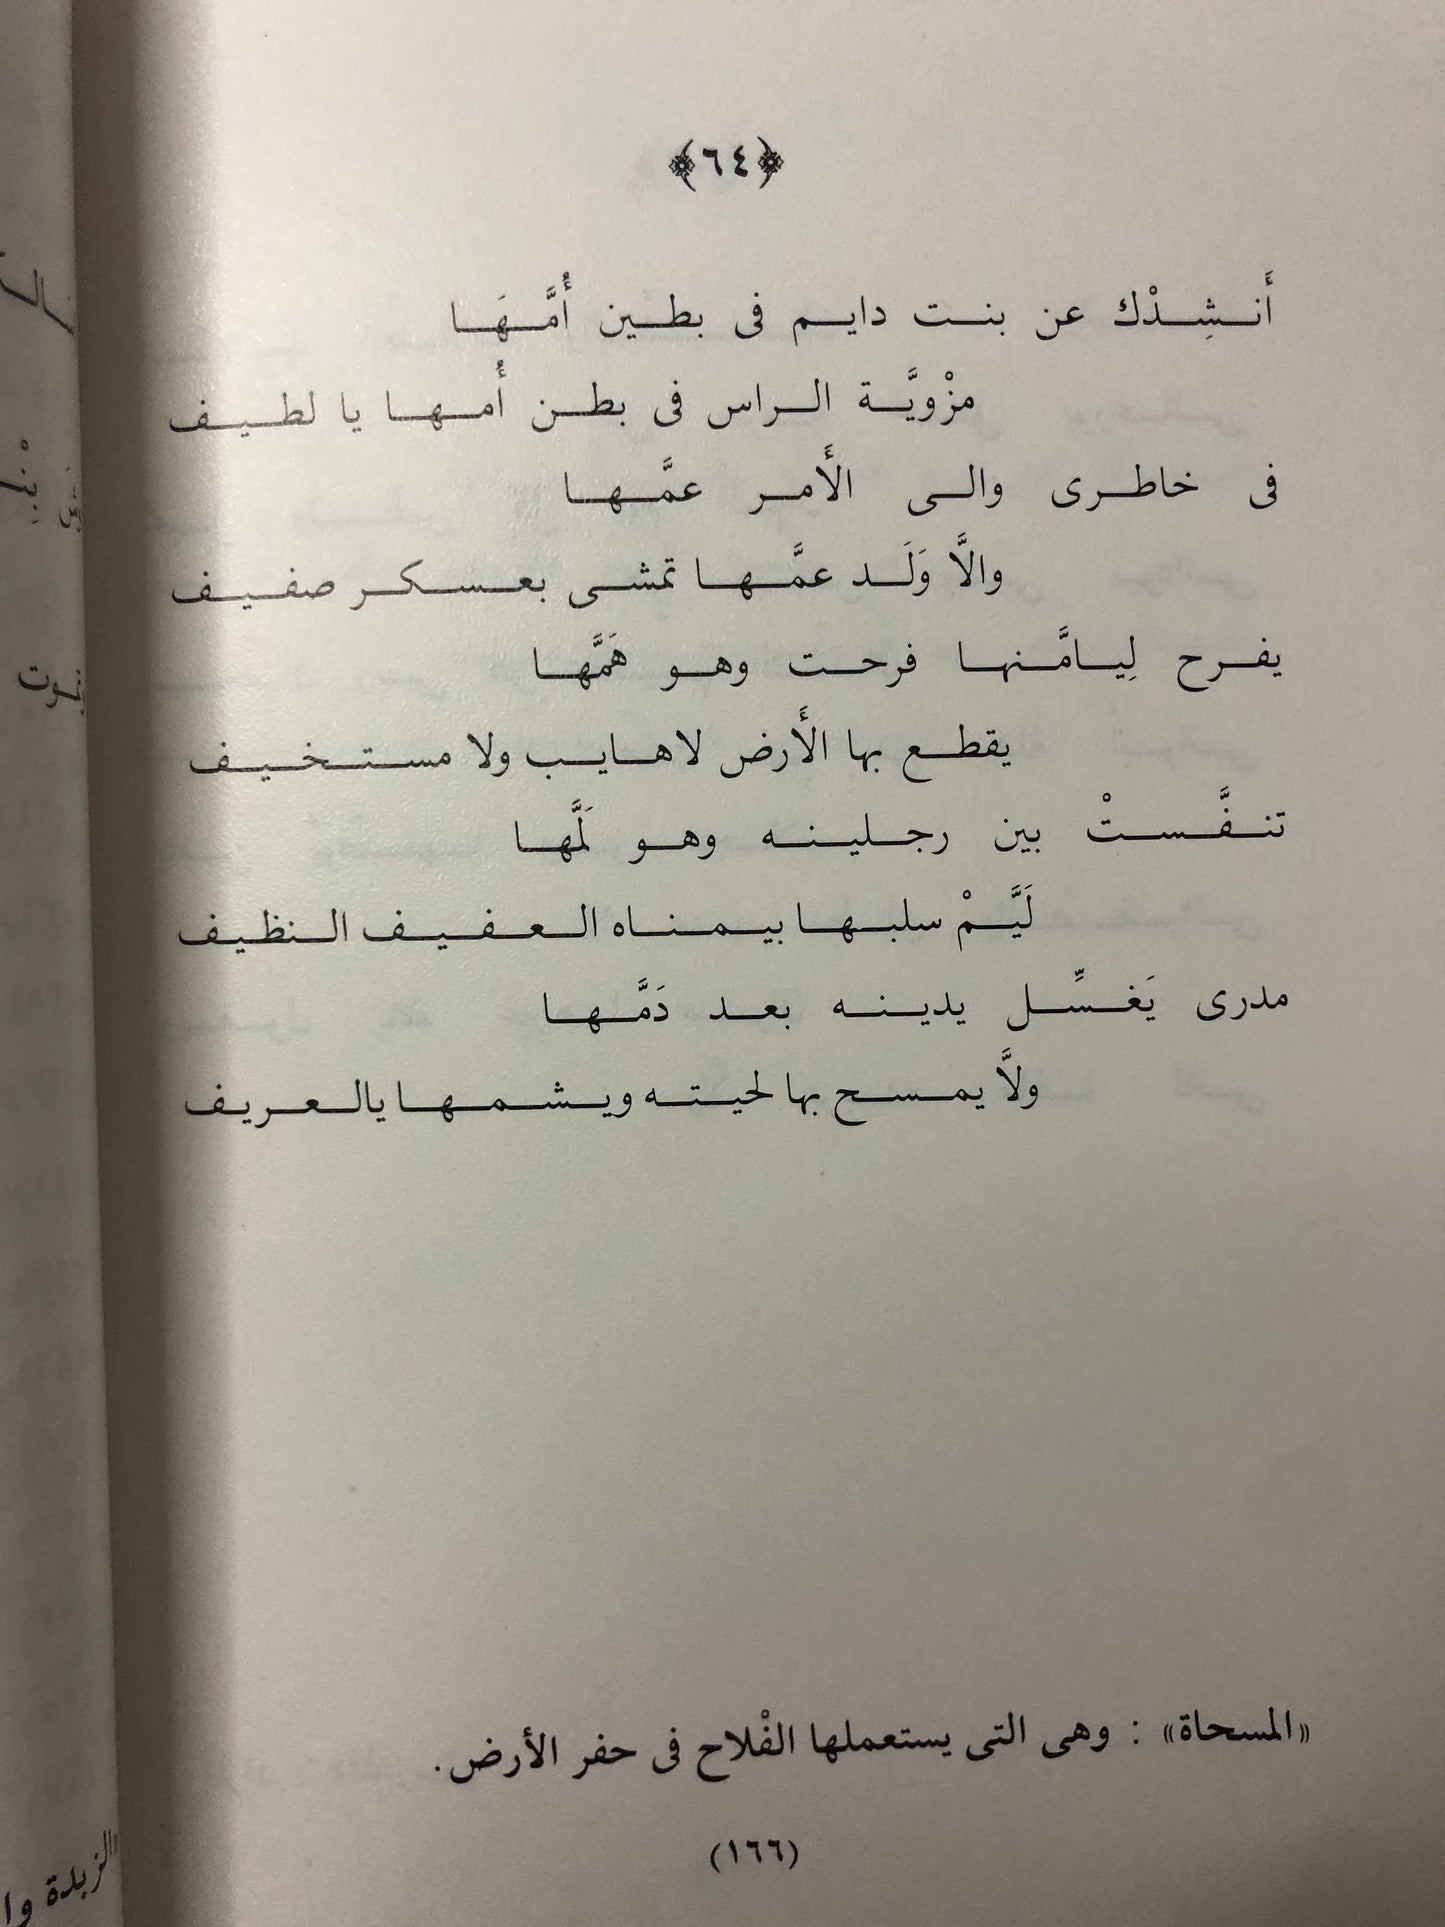 ﴿٦٤﴾
أَنشِدْك عن بنت دايم فى بطين أُمَّهَا
مزْويَّة الراس فى بطن أُمها يا لطيف
فى خاطرى والى الأَمر عمَّها
والاَّ وَلَد عمَّها تمشى بعسكر صفيف
يفرح لِيامَّنها فرحت وهو هَمَّها
يقطع بها الأَرض لاهايب ولا مستخيف
تنفَّستْ بين رجلينه وهو لَمَّها
لَيَّمْ سلبها بيمناه العفيف النظيف
مدرى يَغسِّل يدينه بعد دَمَّها
ولاَّ يمسح بها لحيته ويشمها يالعريف
«المسحاة» : وهى التى يستعملها الفْلاح فى حفر الأرض.
(١٦٦)